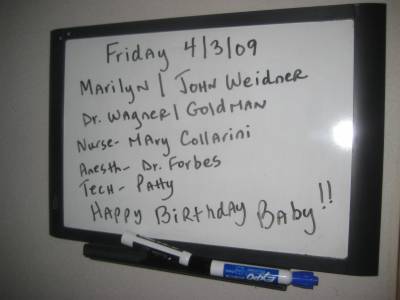 Friday 4/3/09
Marilyn | John Weidner
Dr. Wagner | Goldman
Nurse- Mary Collarini
Anesth- Dr. Forbes
Tech- Patty
Happy Birthday Baby!!
EXPO